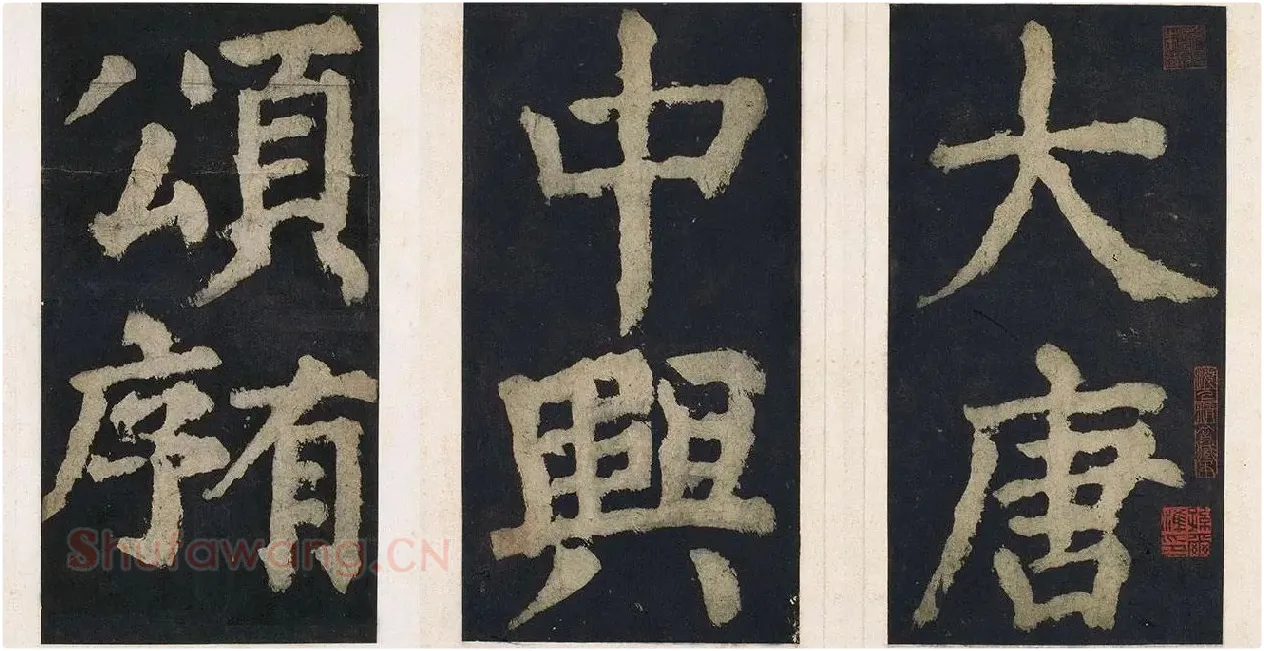 大唐
中興
頌
有序
Shufawang.CN